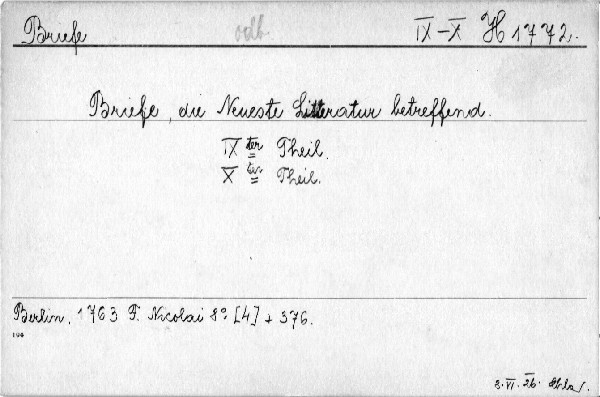 Briefe odb. IX-X H 1772.
Briefe, die Neueste Litteratur betreffend.
IX ter Theil.
X ter Theil.
Berlin. 1763 F. Nicolai 8° [4] + 376.
2. VI. 26.